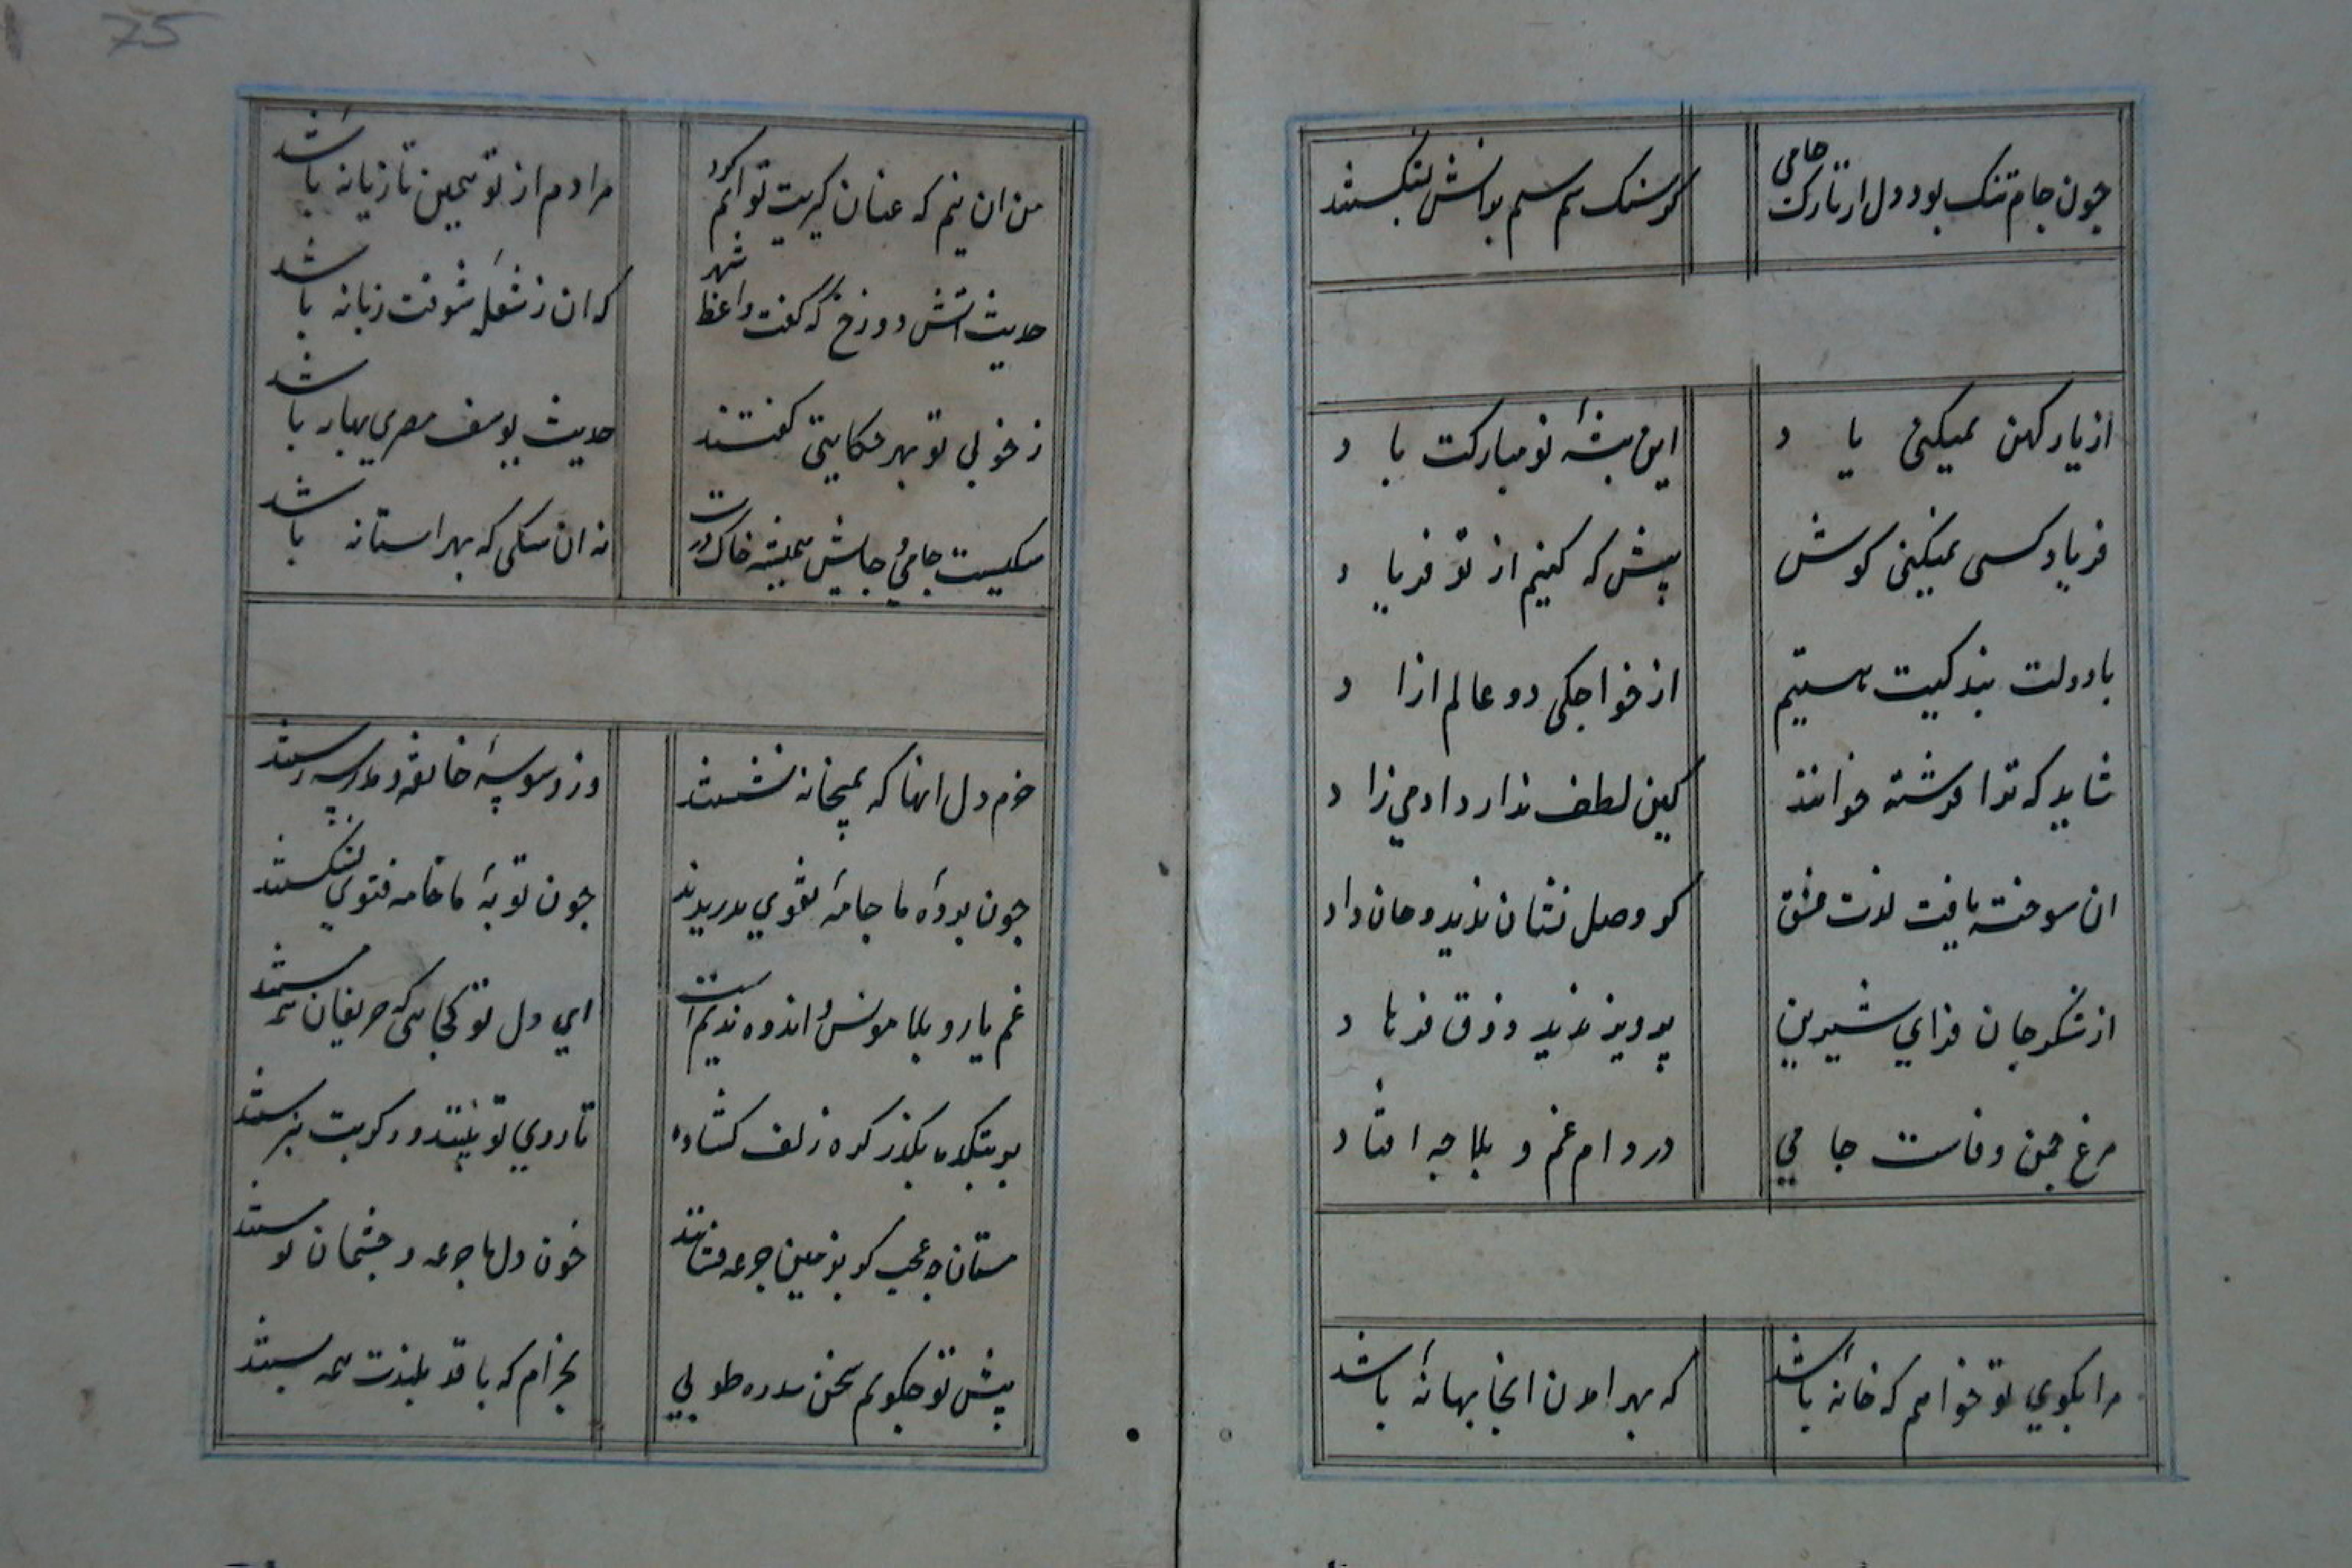 جون جام تنک بود دل از نازکت جامی کز سنک ستم سیم برانش بشکستند
از یار کهن نمیکنی یاد این پیشهٔ نو مبارکت باد
فریاد کسی نمیکنی کوش پیش که کنیم از تو فریاد
با دولت بندکیت هستیم از خواجکی دو عالم ازاد
شاید که ترا فرشته خوانند کین لطف ندارد ادمی زاد
ان سوخته یافت لذت عشق کو وصل نشان ندید و جان داد
از شکر جان فزای شیرین پرویز ندید ذوق فرهاد
مرغ جمن وفاست جامی در دام غم و بلا جه افتاد
مرا بکوی تو خواهم که خانهٔ باشد که بهر امدن انجا بهانهٔ باشد
75
من ان نیم که عنان کیریت توانم کرد مرادم از تو همین تازیانهٔ باشد
حدیث اتش دوزخ که کفت واعظ شهر که ان ز شعلهٔ شوقت زبانهٔ باشد
ز خوبی تو بهر حکایتی کفتند حدیث یوسف مصری بهانه باشد
سکیست جامی و جایش همیشه خاک درت نه ان سکی که بهر استانه باشد
خرم دل انها که بمیخانه نشستند وز وسوسهٔ خانقه و مدرسه رستند
جون پردهٔ ما جامهٔ تقوی بدریدند جون توبهٔ ما خامه فتوی بشکستند
غم یار و بلا مونس و اندوه ندیم است ای دل تو کجایی که حریفان همه هستند
بر بتکده بکذر کره زلف کشاده تا روی تو بینند و دکر بت نپرستند
مستان جه عجب کر بزمین جرعه فشانند خون دل ما جرعه و جشمان تو مستند
پیش تو جکویم سخن سدره و طوبی بخرام که با قد بلندت همه پستند